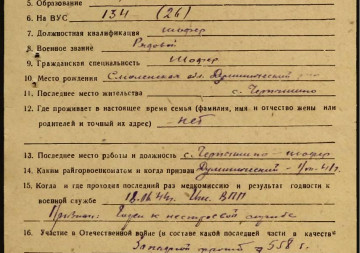 5. Образование
6. На ВУС 134 (26)
7. Должностная квалификация шофер
8. Военное звание Рядовой
9. Гражданская специальность шофер
10. Место рождения Смоленская обл. Думиничский
11. Последнее место жительства с. Чернышино
12. Где проживает в настоящее время семья (фамилия, имя и отчество жены или
родителей и точный их адрес) нет
13. Последнее место работы и должность с. Чернышино - шофер
14. Каким райгорвоенкоматом и когда призван Думиничский - 41г.
15. Когда и где проходил последний раз медкомиссию и результат годности к
военной службе 18. 44г. ВПП
Признан: Годен к нестроевой службе
16. Участие в Отечественной войне (и составе какой последней части в качестве
Западный фронт 558